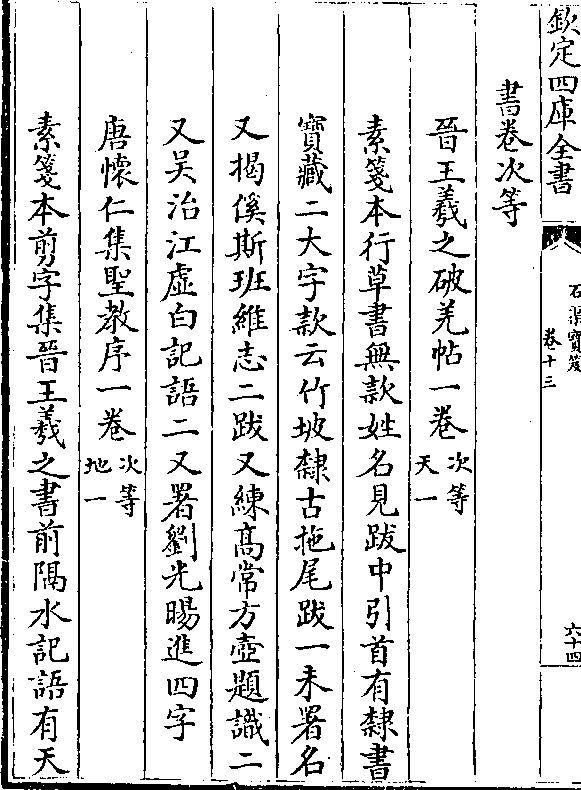 欽定四庫全書
石渠寶笈
卷十三
六十四
書卷次等
晉王羲之破羌帖一卷 次等天一
素箋本行草書無款姓名見跋中引首有隸書
寶藏二大字款云竹坡隸古拖尾跋一未署名
又揭傒斯班維志二跋又練高常方壺題識二
又吳治江虛白記語二又署劉光暘進四字
唐懷仁集聖教序一卷 次等地一
素箋本剪字集晉王羲之書前隔水記語有天